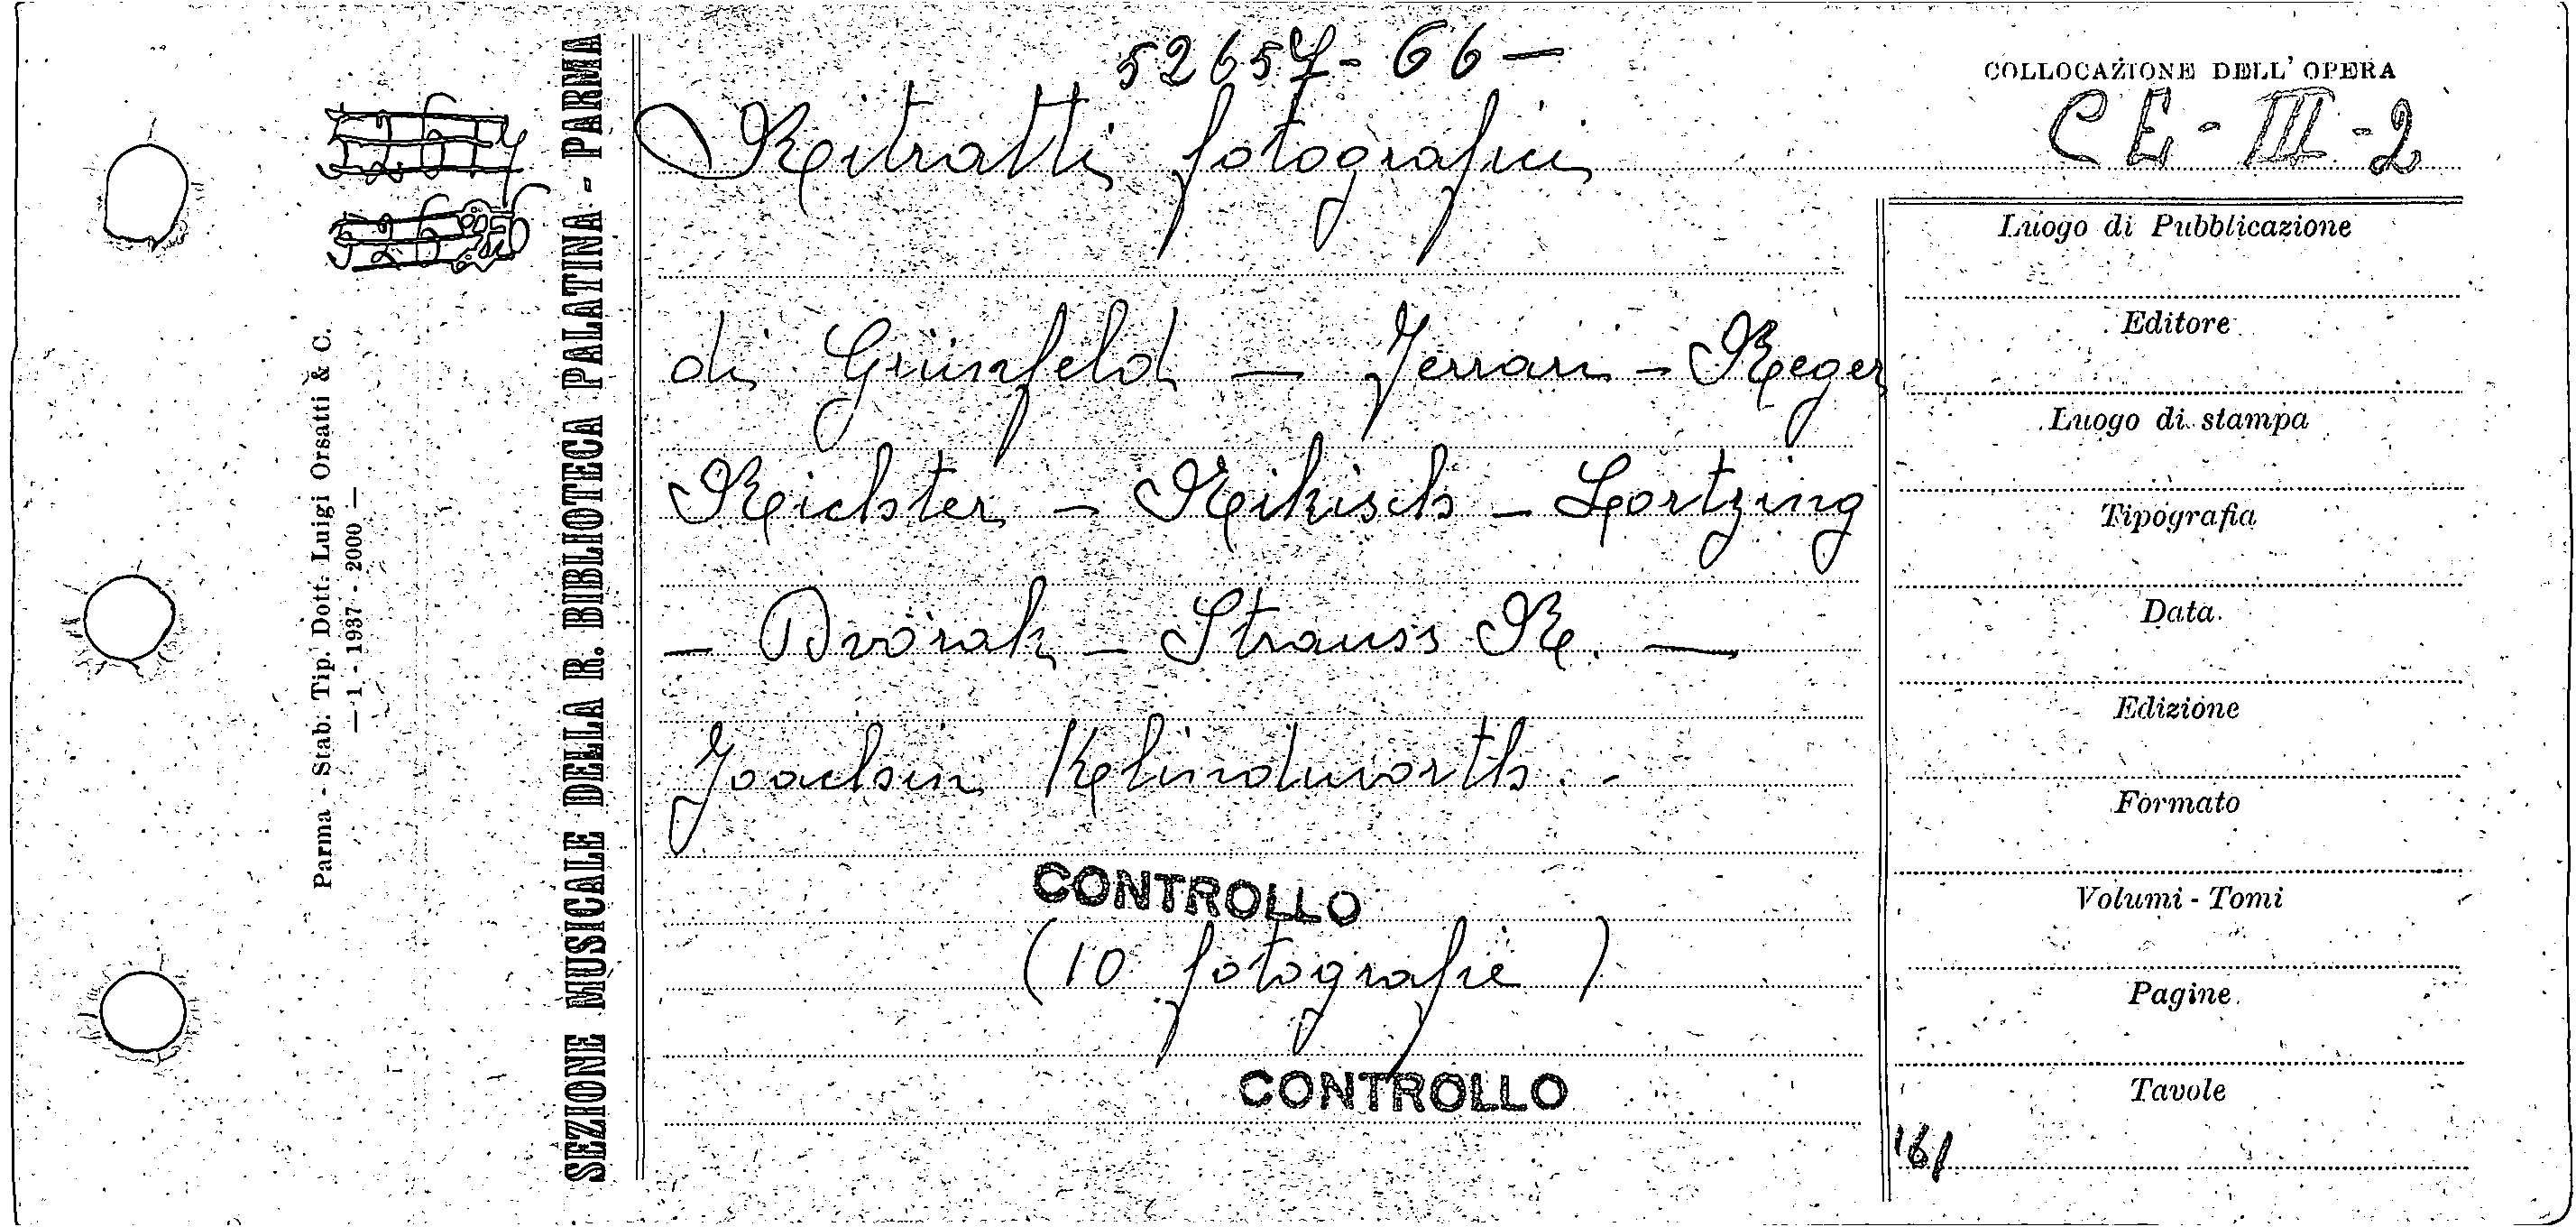 52657-66-
COLLOCAZIONE DELL' OPERA
CE-III-2
Ritratti fotografici
di Grünfeld - Ferrari - Reger
Richter - Nikisch - Lortzing
- Dvorak - Strauss R. -
Joachim Klindworth. -
CONTROLLO
(10 fotografie)
CONTROLLO
Luogo di Pubblicazione
Editore
Luogo di stampa
Tipografia
Data
Edizione
Formato
Volumi - Tomi
Pagine
Tavole
161
SEZIONE MUSICALE DELLA R. BIBLIOTECA PALATINA - PARMA
Parma - Stab. Tip. Dott. Luigi Orsatti & C.
- 1 - 1937 - 2000 -